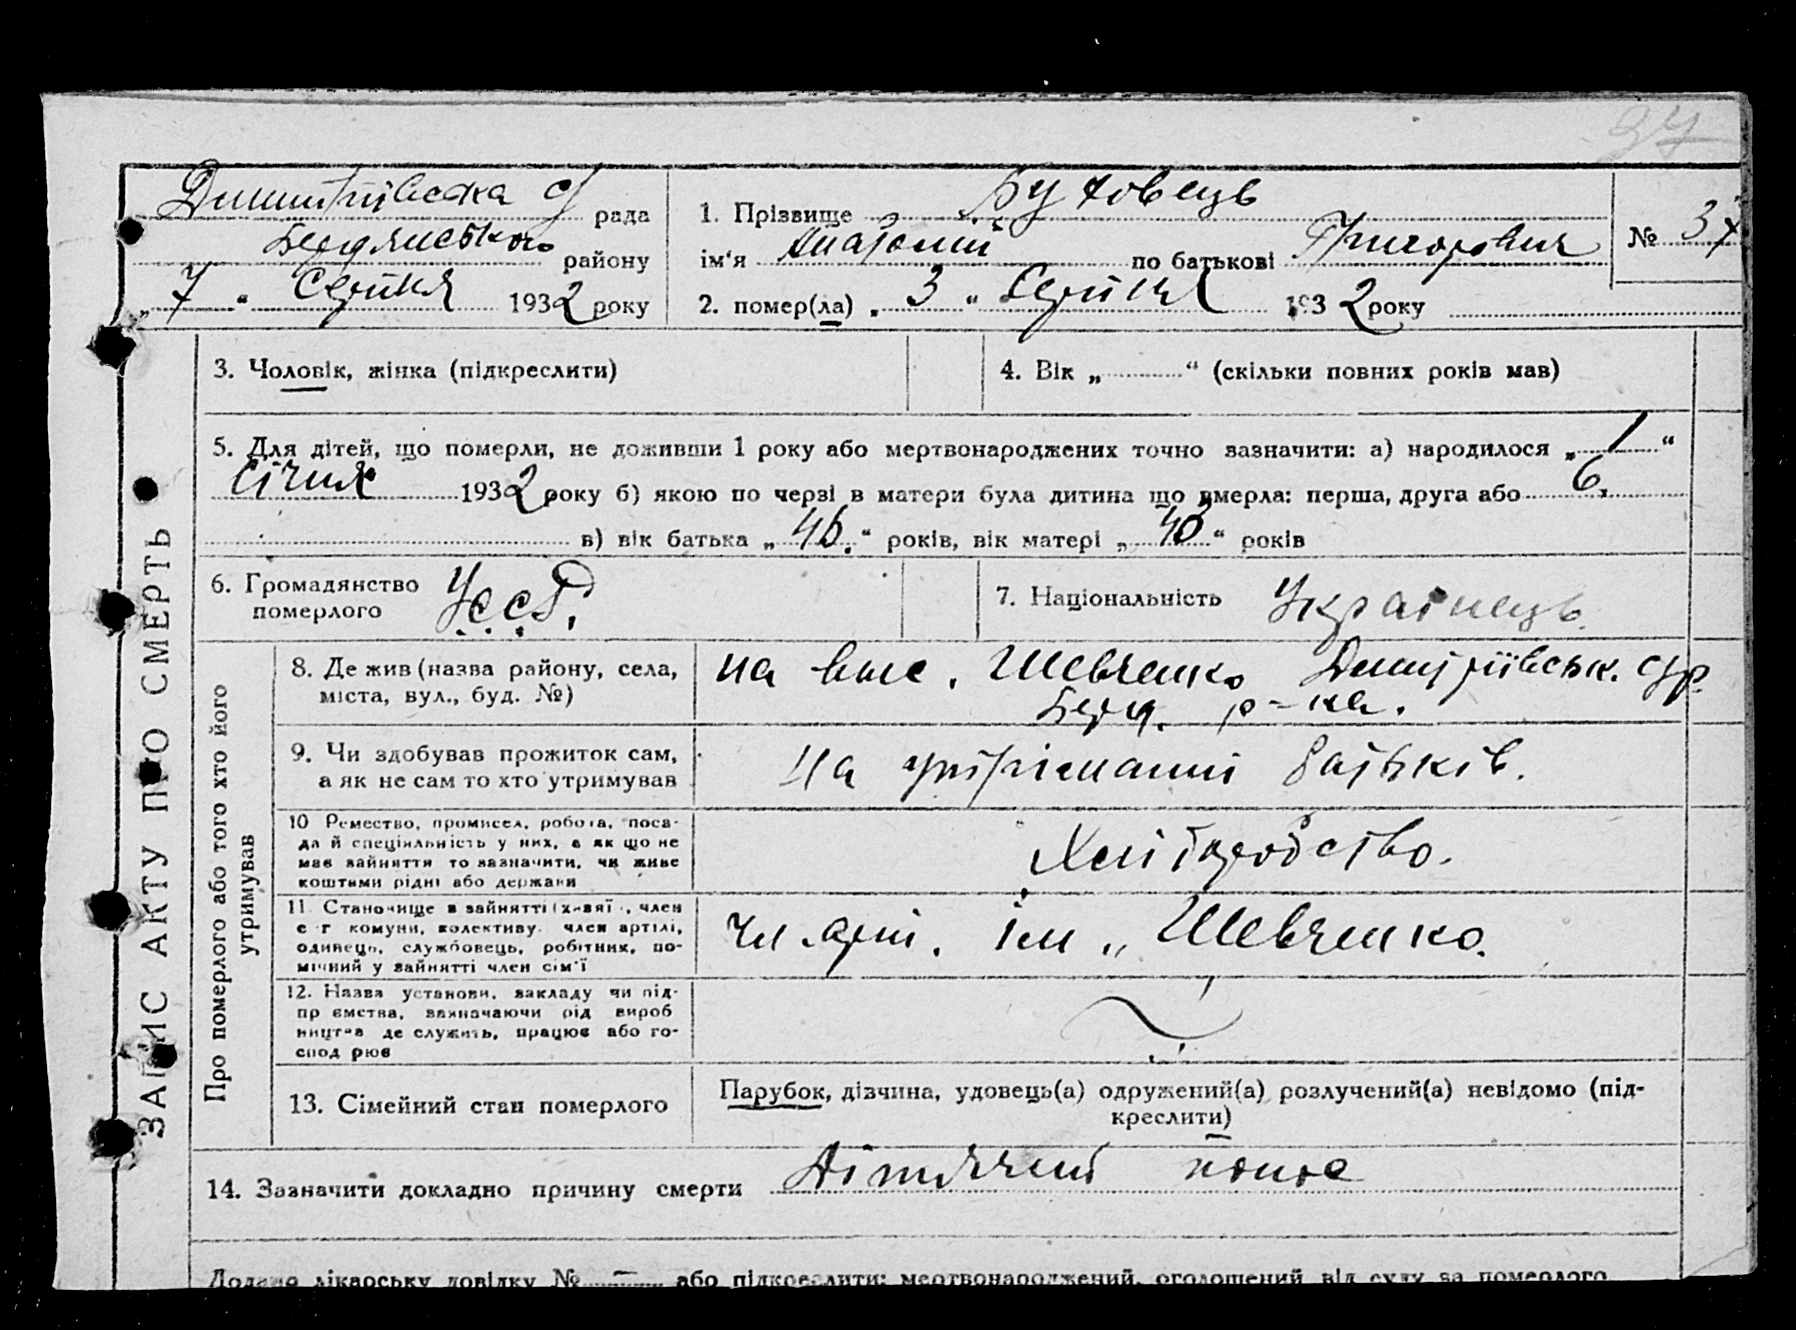 37
ЗАПИС АКТУ ПРО СМЕРТЬ
Дмитрівська с/ рада
Бердянського району
„ 7 “ Серпня 1932 року
1. Прізвище Бутовець
ім'я Анатолій по батькові Григорович
2. помер(ла) „ 3 “ Серпня 1932 року
№ 37
3. Чоловік, жінка (підкреслити)
4. Вік „ “ (скільки повних років мав)
5. Для дітей, що померли, не доживши 1 року або мертвонароджених точно зазначити: а) народилося „ 1 “
Січня 1932 року б) якою по черзі в матери була дитина що вмерла: перша, друга або 6.
в) вік батька „ 46. “ років, вік матері „ 43 “ років
6. Громадянство
померлого УССР.
7. Національність Українець.
Про померлого або того хто його
утримував
8. Де жив (назва району, села,
міста, вул., буд. №)
на вис. Шевченко Дмитрівськ. с/р.
Берд. р-на.
9. Чи здобував прожиток сам,
а як не сам то хто утримував
на утріманні батьків.
10 Ремество, промисел, робота, поса-
да й спеціяльність у них, а як що не
має зайняття то зазначити, чи живе
коштами рідні або держави
Хліборобство.
11. Становище в зайнятті (хазяї, член
с-г комуни, колективу член артілі,
одинець, службовець, робітник, по-
мічний у зайнятті член сім'ї
Чл. арті. ім „ Шевченко.
12. Назва установи, закладу чи під-
приємства, зазначаючи рід вироб
ництва де служить, працює або го-
сподарює
13. Сімейний стан померлого
Парубок, дівчина, удовець(а) одружений(а) розлучений(а) невідомо (під-
креслити)
14. Зазначити докладно причину смерти Дітячий понос
Додано лікарську довідку № — або підкреслити: мертвонароджений, оголошений від суду за померлого